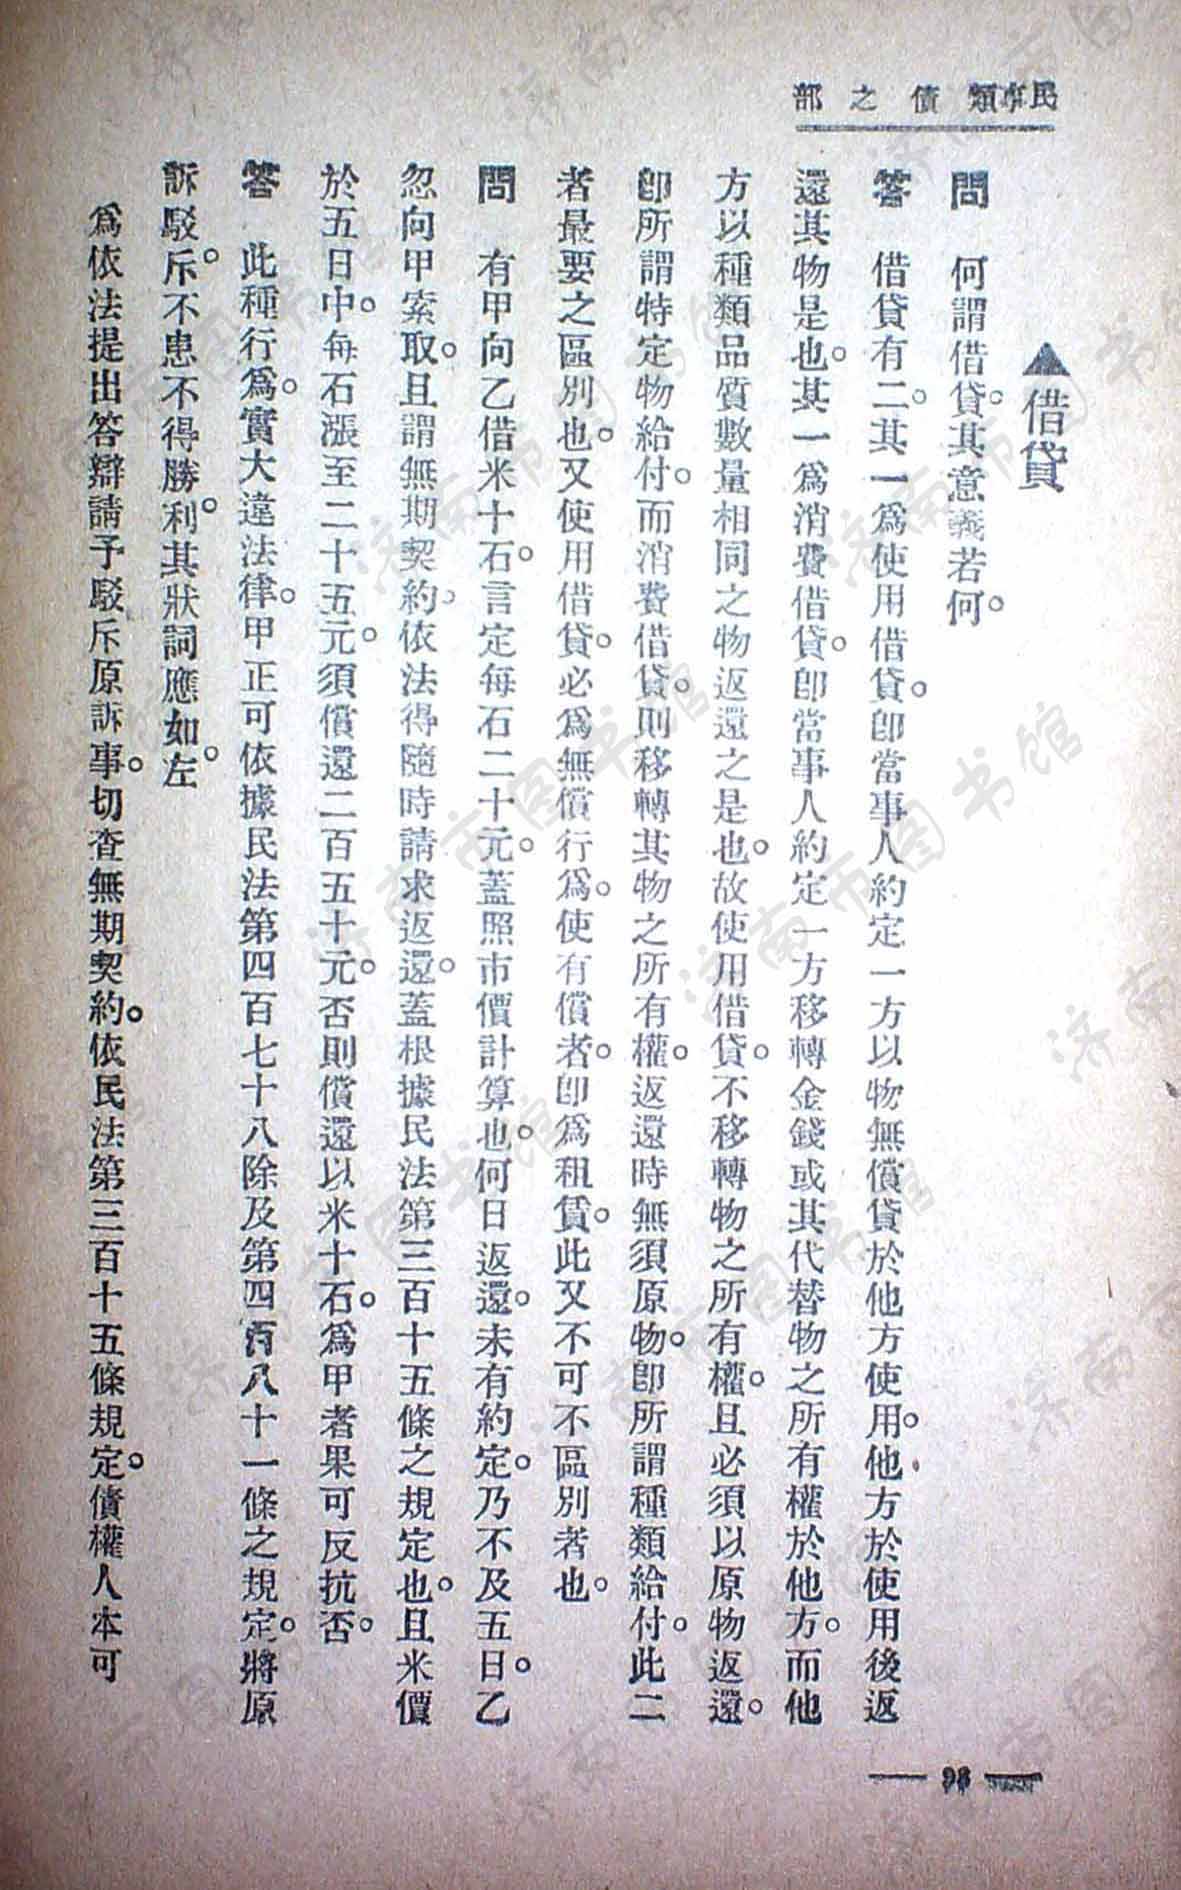 民事類債之部
▲借貸
問　何謂借貸。其意義若何。
答　借貸有二。其一爲使用借貸。卽當事人約定一方以物無償貸於他方使用。他方於使用後返
還其物是也。其一爲消費借貸。卽當事人約定一方移轉金錢或其代替物之所有權於他方。而他
方以種類品質數量相同之物返還之是也。故使用借貸。不移轉物之所有權。且必須以原物返還。
卽所謂特定物給付。而消費借貸。則移轉其物之所有權。返還時無須原物。卽所謂種類給付。此二
者最要之區別也。又使用借貸。必爲無償行爲。使有償者。卽爲租賃。此又不可不區別者也。
問　有甲向乙借米十石。言定每石二十元。蓋照市價計算也。何日返還。未有約定。乃不及五日。乙
忽向甲索取。且謂無期契約。依法得隨時請求返還。蓋根據民法第三百十五條之規定也。且米價
於五日中。每石漲至二十五元。須償還二百五十元。否則償還以米十石。爲甲者果可反抗否。
答　此種行爲。實大違法律。甲正可依據民法第四百七十八除及第四百八十一條之規定。將原
訴駁斥。不患不得勝利。其狀詞應如左。
爲依法提出答辯請予駁斥原訴事。切查無期契約。依民法第三百十五條規定。債權人本可
98
济南市图书馆